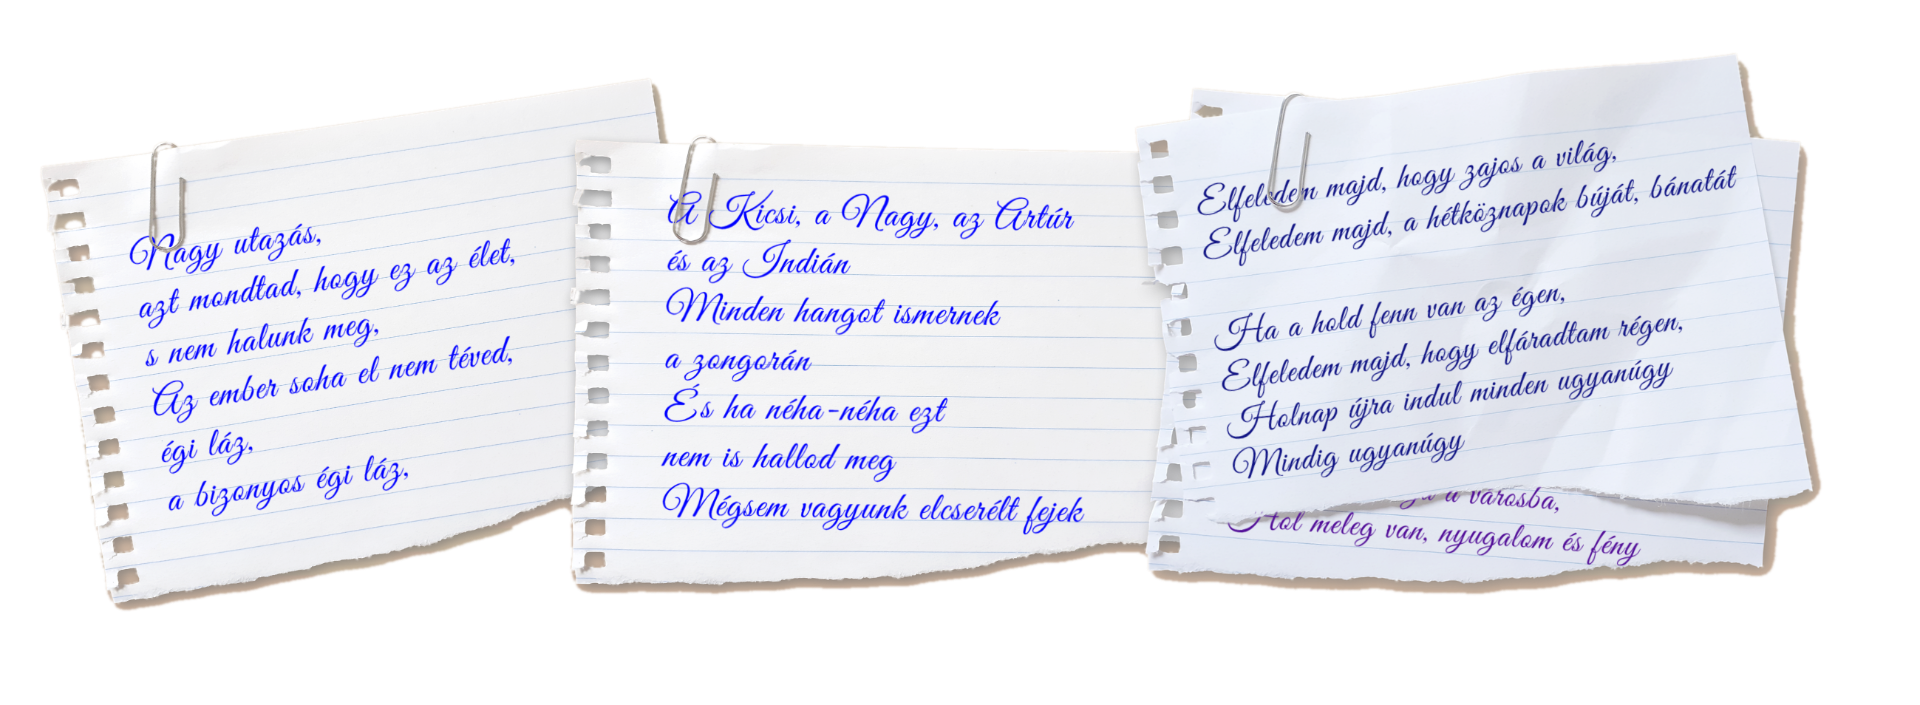 Nagy utazás,
azt mondtad, hogy ez az élet,
s nem halunk meg,
Az ember soha el nem téved,
égi láz,
a bizonyos égi láz,
A Kicsi, a Nagy, az Artúr
és az Indián
Minden hangot ismernek
a zongorán
És ha néha-néha ezt
nem is hallod meg
Mégsem vagyunk elcserélt fejek
Elfeledem majd, hogy zajos a világ,
Elfeledem majd, a hétköznapok búját, bánatát
Ha a hold fenn van az égen,
Elfeledem majd, hogy elfáradtam régen,
Holnap újra indul minden ugyanúgy
Mindig ugyanúgy
a városba,
Hol meleg van, nyugalom és fény